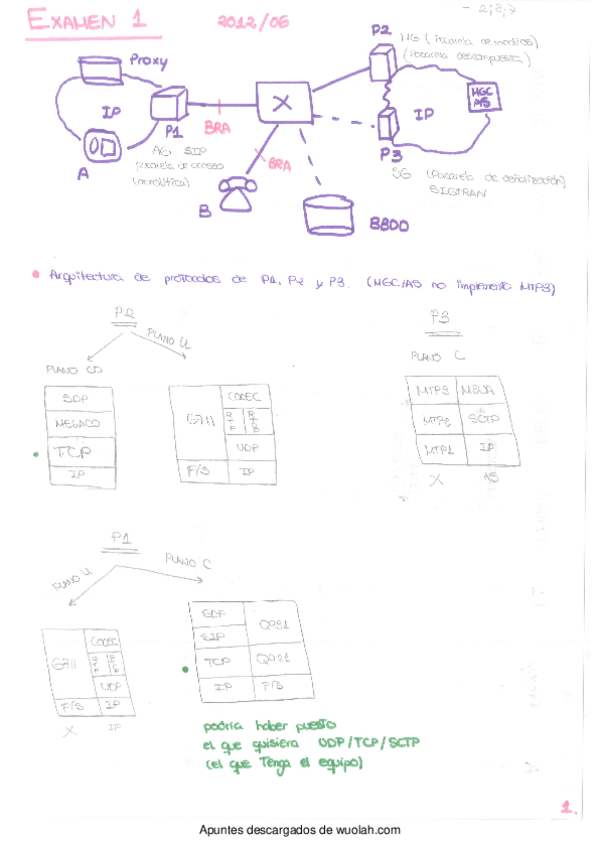 EXAMEN 1
2012/06
- 2,8,7
P2
MG (Pasarela de medios)
(Pasarela descompuesta)
Proxy
IP
P1
BRA
X
IP
MGC
AS
A
AG SIP
pasarela de acceso
(monolítica)
BRA
P3
SG (Pasarela de señalización)
SIGTRAN
B
BBDD
• Arquitectura de protocolos de P1, P2 y P3. (MGC/AS no implementa MTP3)
P2
PLANO U
PLANO CD
SDP
MEGACO
TCP
IP
G711
CODEC
RTP
RTP
UDP
F/S
IP
P3
PLANO C
MTP3 M3UA
MTP2 SCTP
MTP1 IP
X AS
P1
PLANO U
PLANO C
G711
CODEC
UDP
F/S IP
X IP
SDP
SIP
Q931
TCP Q921
IP F/S
podría haber puesto
el que quisiera UDP/TCP/SCTP
(el que tenga el equipo)
1.
Apuntes descargados de wuolah.com